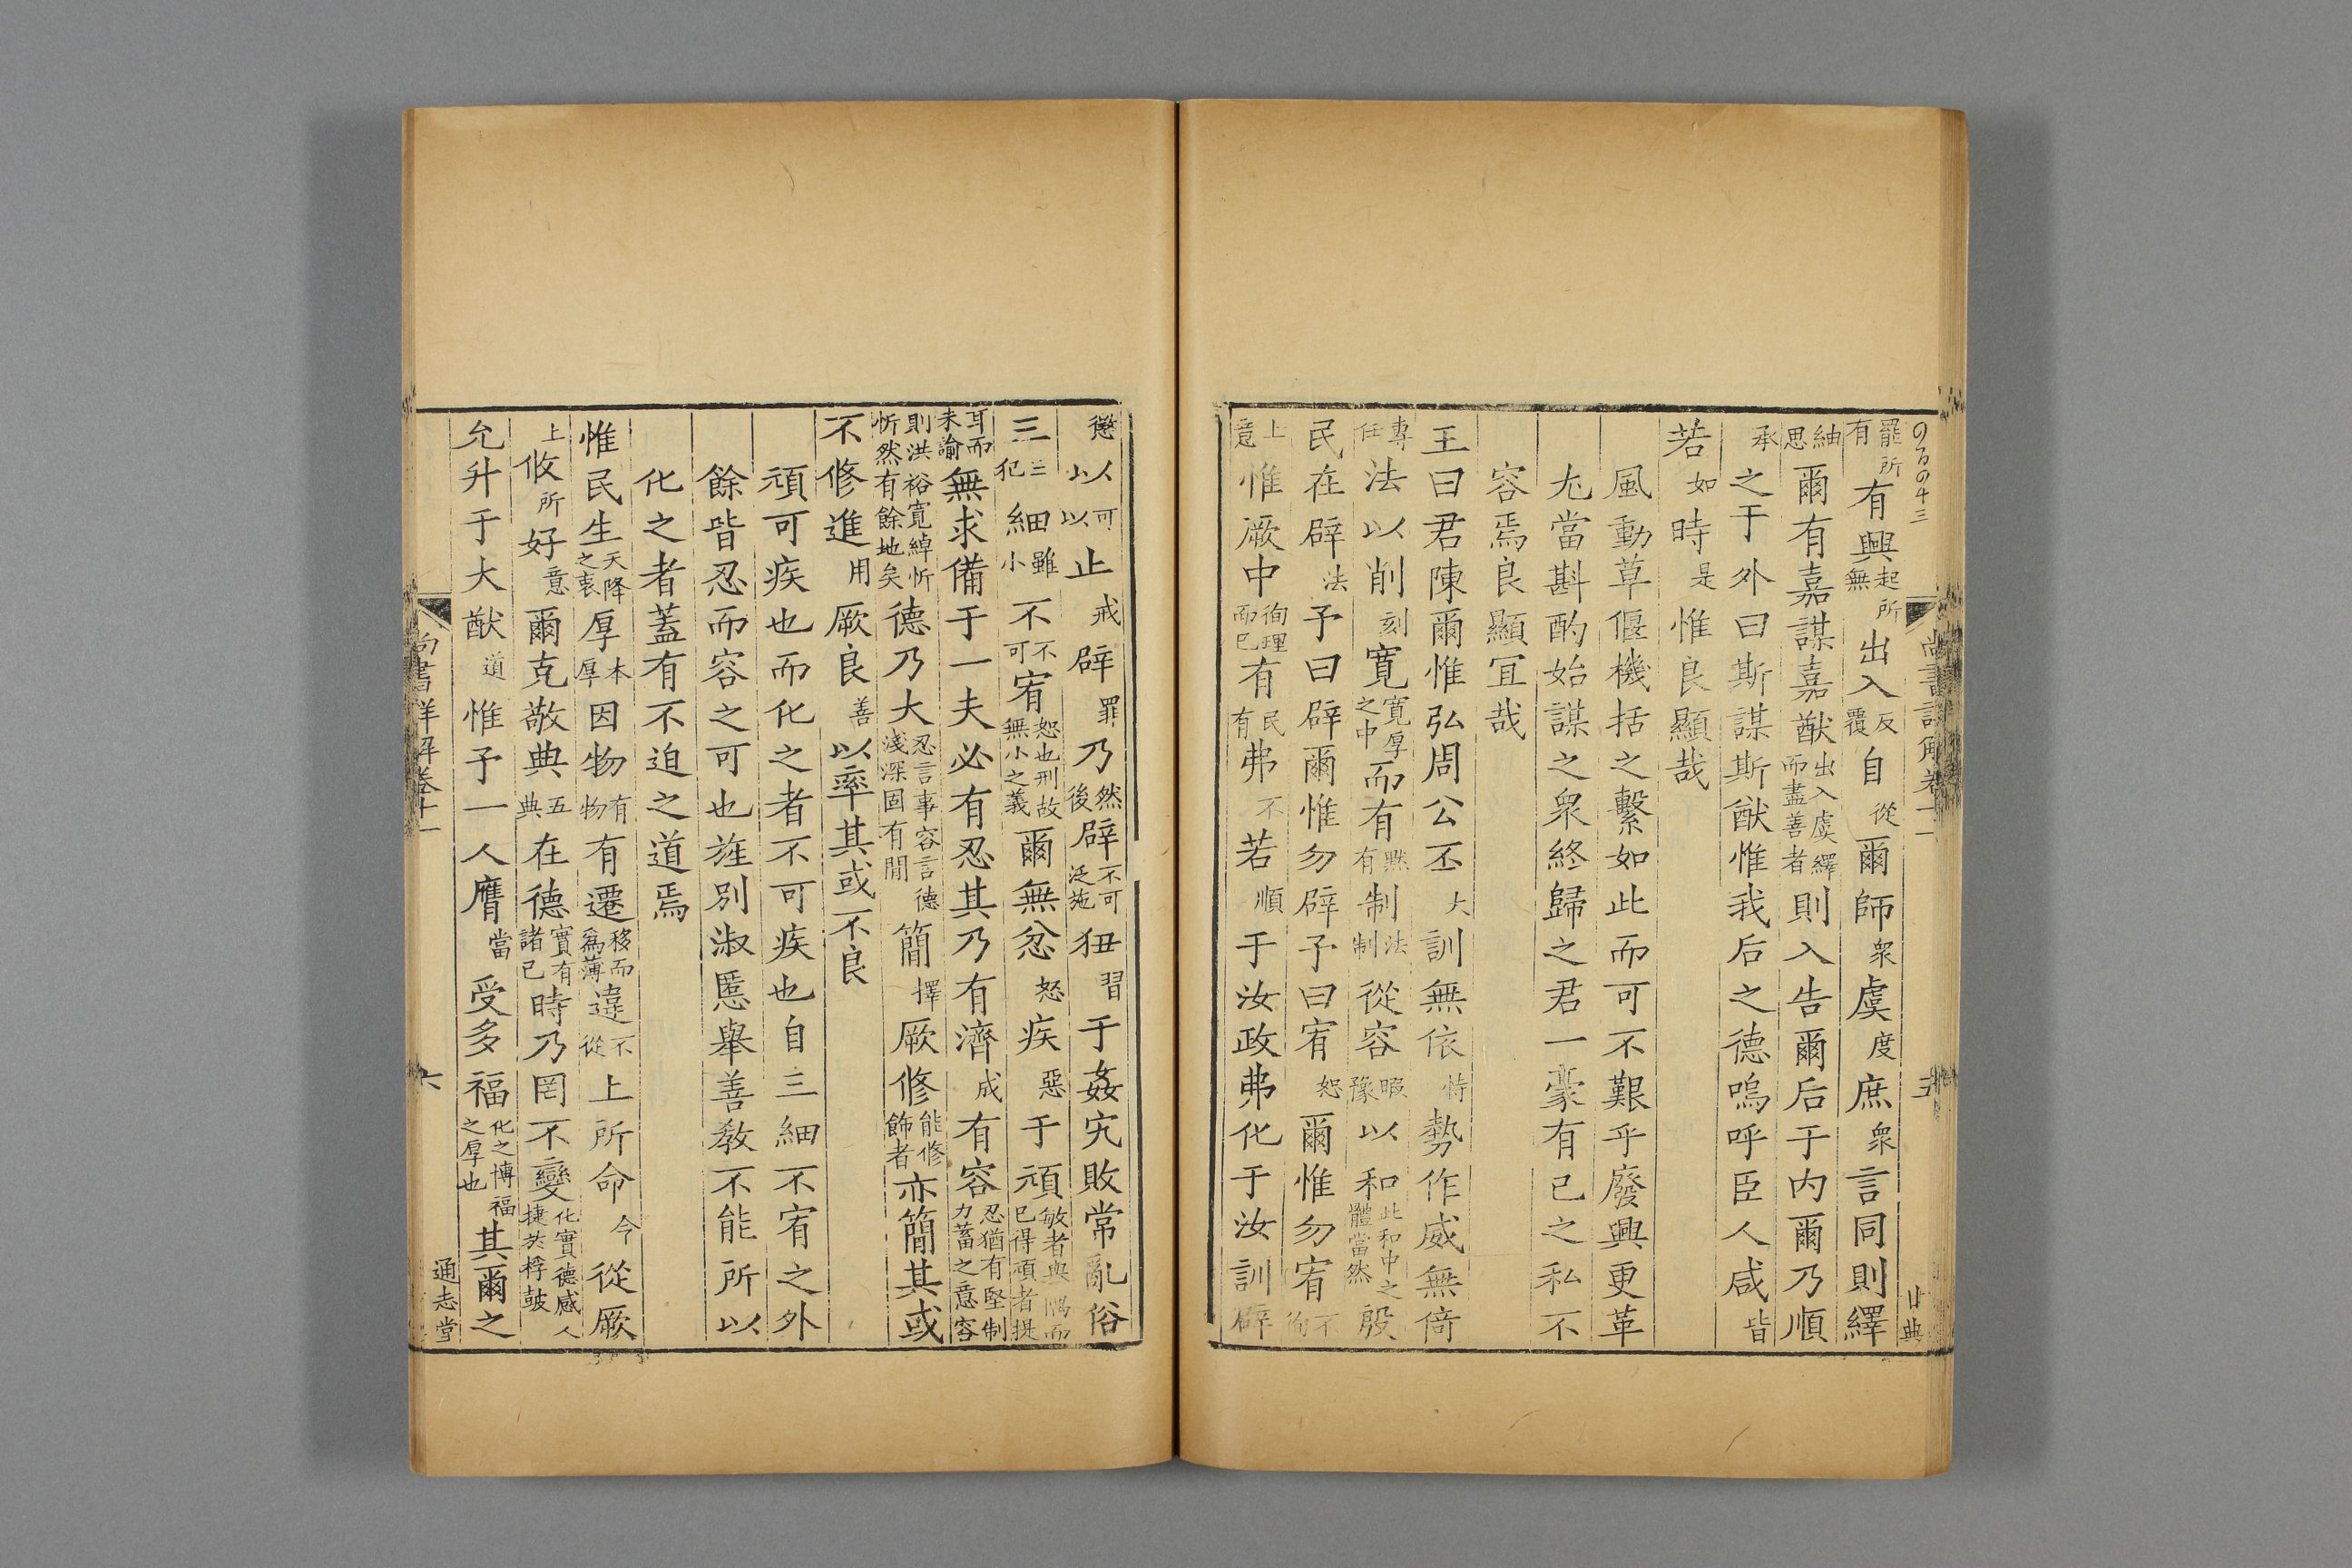 罷所有有興起所無出入反覆自從爾師衆虞度庶衆言同則繹
紬思爾有嘉謀嘉猷出入虞繹而盡善者則入告爾后于内爾乃順
承之于外曰斯謀斯猷惟我后之德嗚呼臣人咸皆
若如時是惟良顯哉
風動草偃機括之繫如此而可不艱乎廢興更革
尢當斟酌始謀之衆終歸之君一豪有已之私不
容焉良顯宜哉
王曰君陳爾惟弘周公丕大訓無依恃勢作威無倚
專任法以削刻寛寛厚之中而有黙有制法制從容暇豫以和此和中之體當然殷
民在辟法予曰辟爾惟勿辟予曰宥恕爾惟勿宥不徇
上意惟厥中徇理而已有民有弗不若順于汝政弗化于汝訓辟
尚書詳解卷十一
五
懲以可以止戒辟罪乃然後辟不可泛施狃習于姦宄敗常亂俗
三三犯細雖小不不可宥恕也刑故無小之義爾無忿怒疾惡于頑敏者與隅而已得頑者提
耳而未諭無求備于一夫必有忍其乃有濟成有容忍猶有堅制力蓄之意容
則洪裕寛綽忻忻然有餘地矣德乃大忍言事容言德淺深固有閒簡擇厥修能修飾者亦簡其或
不修進用厥良善以率其或不良
頑可疾也而化之者不可疾也自三細不宥之外
餘皆忍而容之可也旌別淑慝舉善敎不能所以
化之者蓋有不迫之道焉
惟民生天降之衷厚本厚因物有物有遷移而爲薄違不從上所命令從厥
上攸所好意爾克敬典五典在德實有諸已時乃罔不變化實德感人捷於桴鼓
允升于大猷道惟予一人膺當受多福化之博福之厚也其爾之
尚書詳解卷十一
六
通志堂